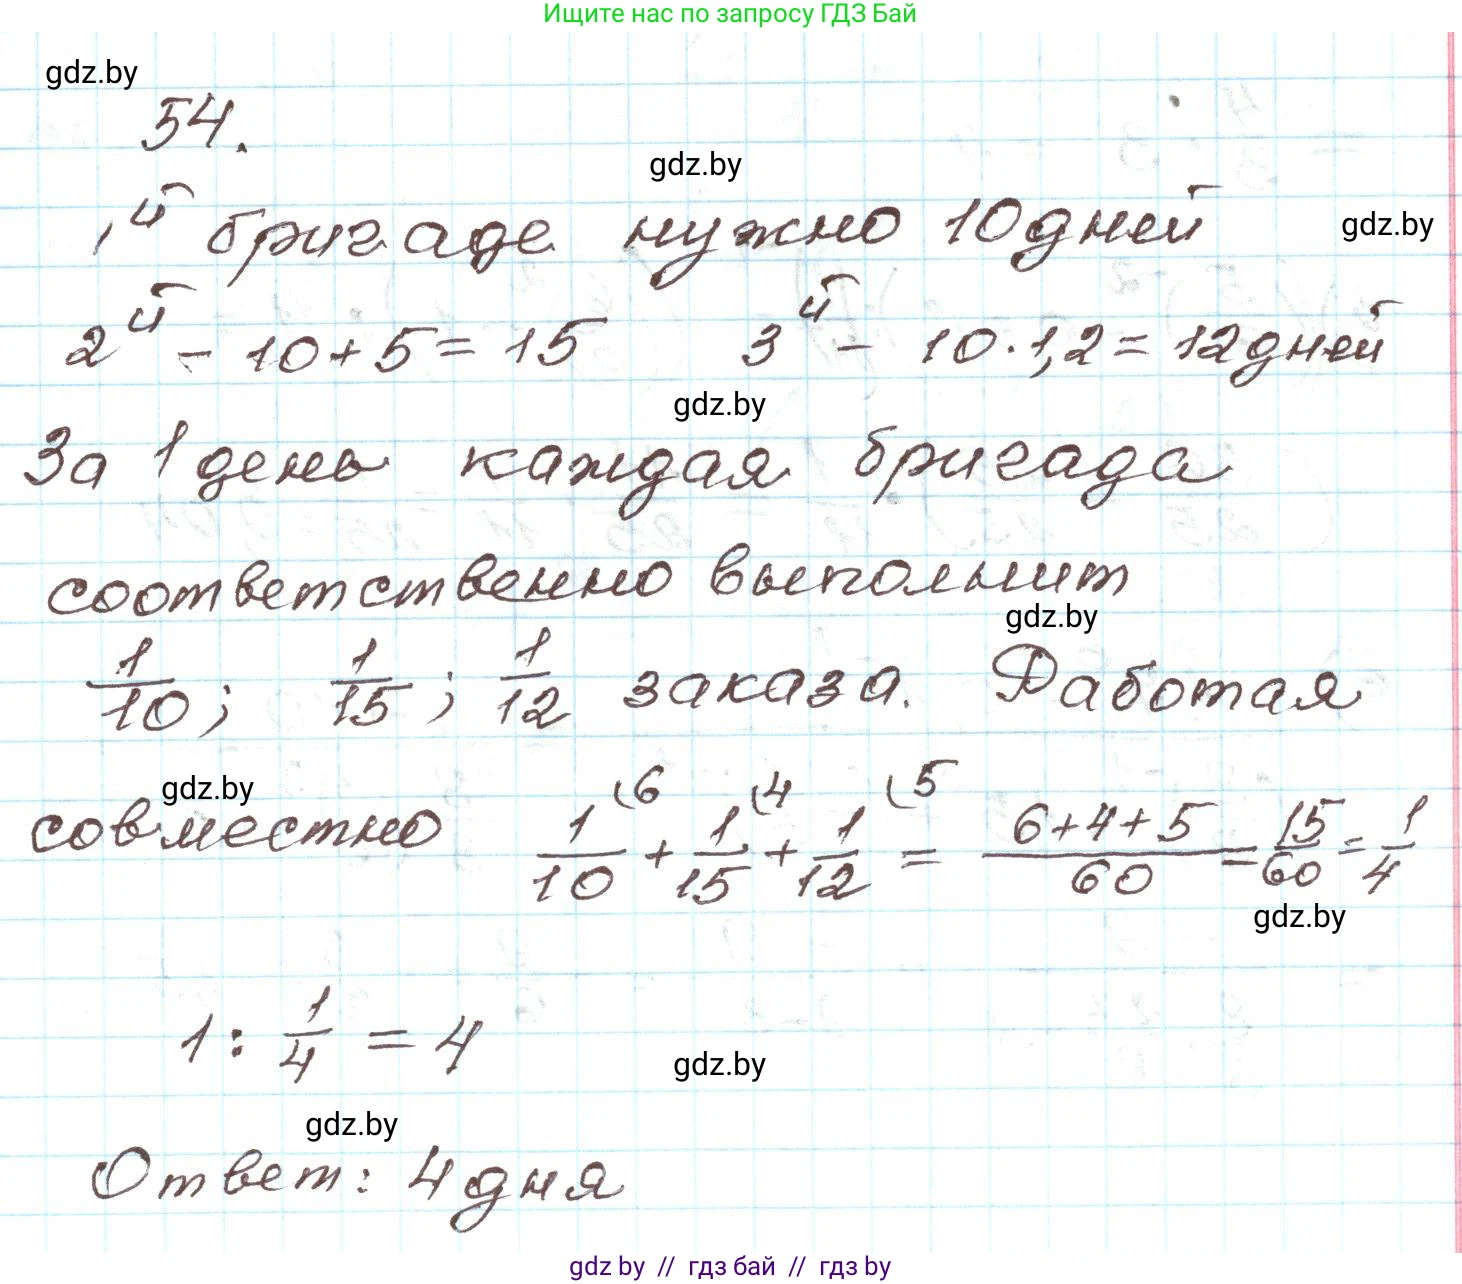 Ищите нас по запросу ГДЗ Бай
gdz.by
54.
gdz.by
1й бригаде нужно 10 дней
gdz.by
2й - 10+5=15 3й - 10·1,2=12 дней
gdz.by
За 1 день каждая бригада
соответственно выполнит
gdz.by
1/10; 1/15; 1/12 заказа. Работая
gdz.by
совместно 1/10 (6 + 1/15 (4 + 1/12 (5 = (6+4+5)/60 = 15/60 = 1/4
gdz.by
1 : 1/4 = 4
gdz.by
gdz.by
Ответ: 4 дня
gdz.by // гдз бай // гдз by